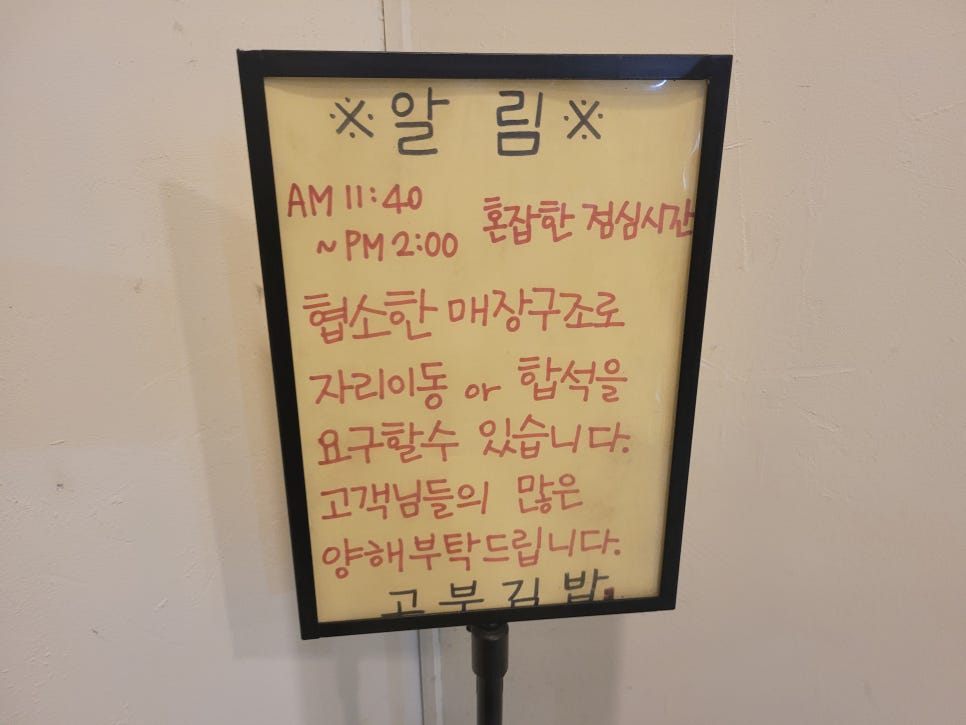 ※알 림※
AM 11:40
~PM 2:00 혼잡한 점심시간
협소한 매장구조로
자리이동 or 합석을
요구할수 있습니다.
고객님들의 많은
양해부탁드립니다.
고부김밥